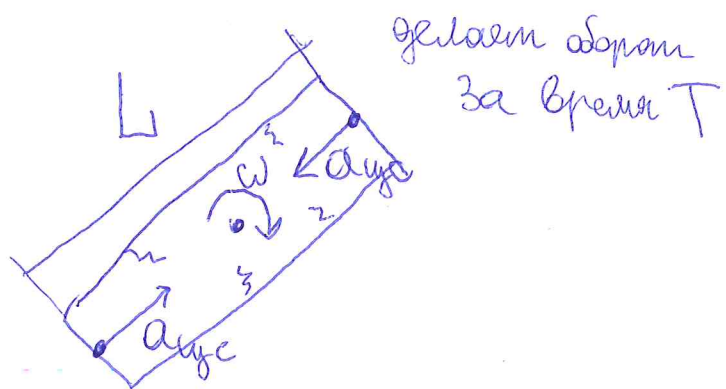 делает оборот
за время T
L
ω
aцс
aцс